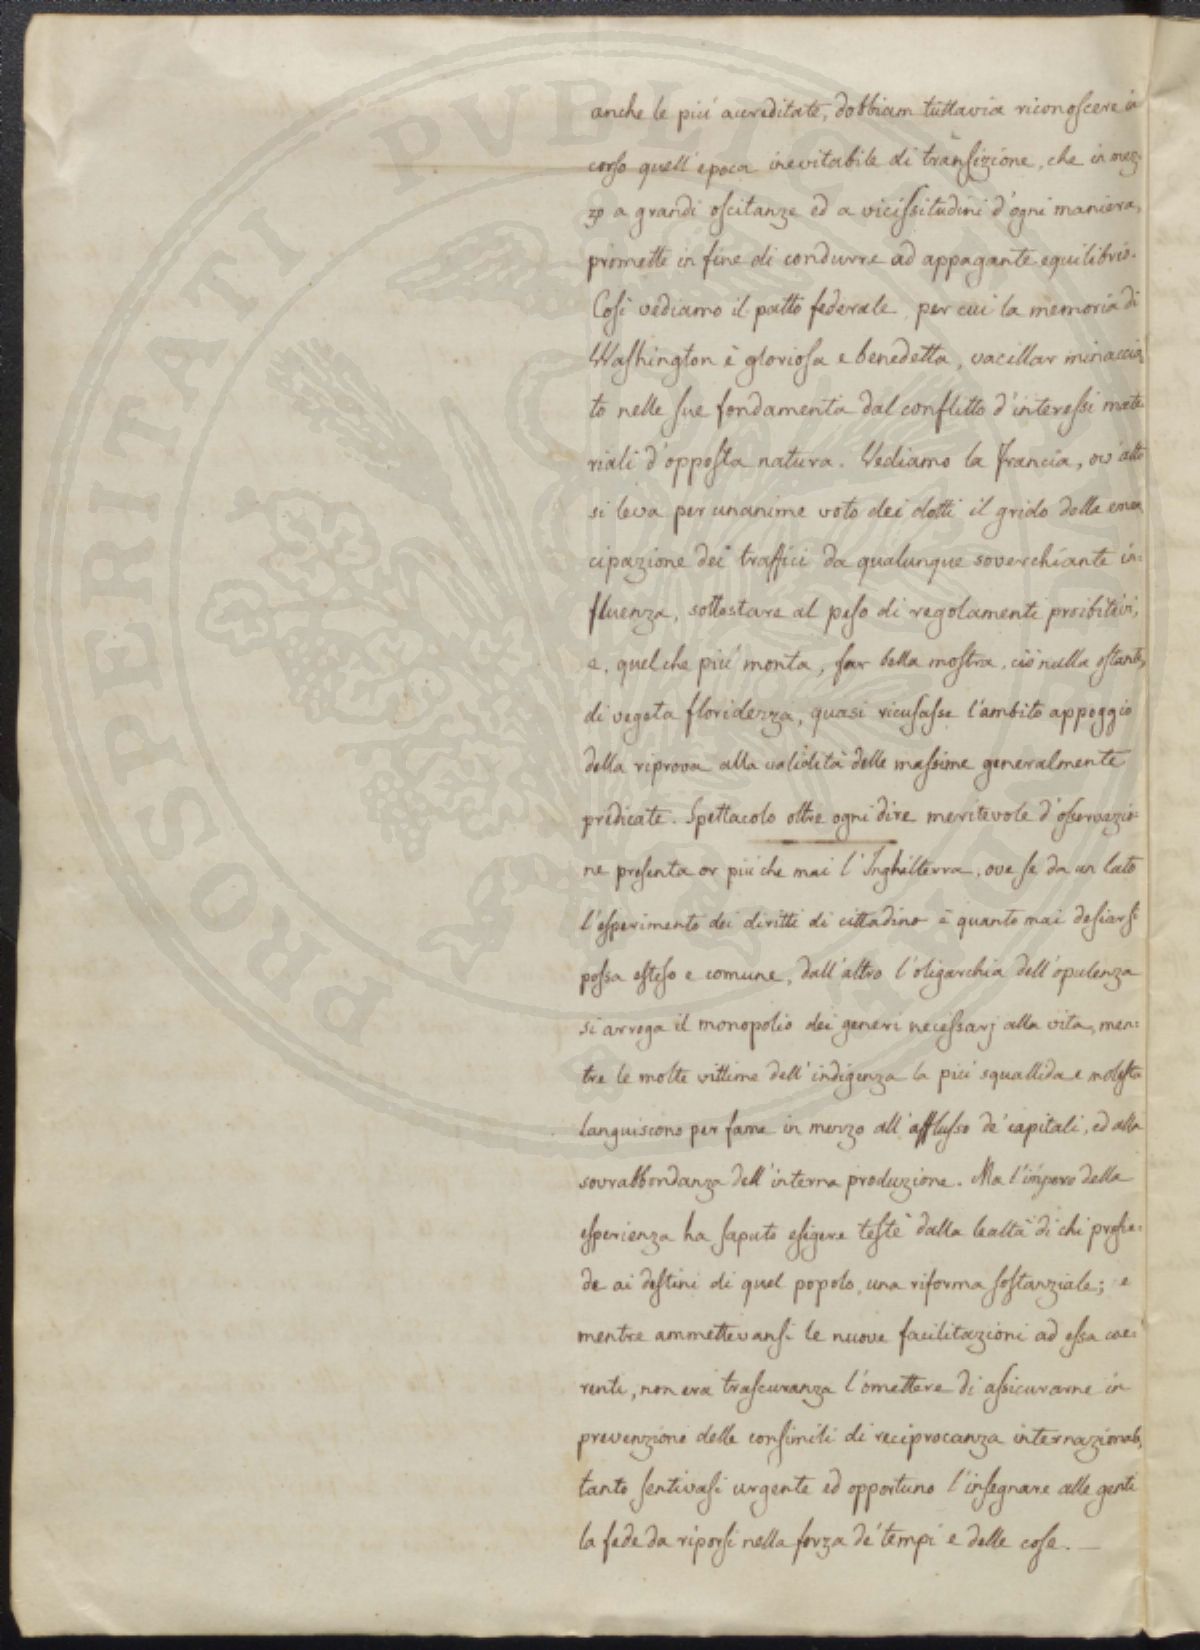 anche le più accreditate, dobbiam tuttavia riconoscere in
corso quell'epoca inevitabile di transizione, che in mez-
zo a grandi oscitanze ed a vicissitudini d'ogni maniera,
promette in fine di condurre ad appagante equilibrio.
Così vediamo il patto federale, per cui la memoria di
Washington è gloriosa e benedetta, vacillar minaccia
to nelle sue fondamenta dal conflitto d'interessi mate
riali d'opposta natura. Vediamo la Francia, ov'alto
si leva per unanime voto dei dotti il grido della eman
cipazione dei traffici da qualunque soverchiante in=
fluenza, sottostare al peso di regolamenti proibitivi,
e, quel che più monta, far bella mostra, ciò nulla ostante,
di vegeta floridezza, quasi ricusasse l'ambito appoggio
della riprova alla validità delle massime generalmente
predicate. Spettacolo oltre ogni dire meritevole d'osservazio-
ne presenta or più che mai l'Inghilterra, ove se da un lato
l'esperimento dei diritti di cittadino è quanto mai desiarsi
possa esteso e comune, dall'altro l'oligarchia dell'opulenza
si arroga il monopolio dei generi necessarj alla vita, men=
tre le molte vittime dell'indigenza la più squallida e molesta
languiscono per fame in mezzo all'afflusso de' capitali, ed alla
sovrabbondanza dell'interna produzione. Ma l'impero della
esperienza ha saputo esigere testè dalla lealtà di chi presie=
de ai destini di quel popolo, una riforma sostanziale; e
mentre ammettevansi le nuove facilitazioni ad essa coe=
renti, non era trascuranza l'omettere di assicurarne in
prevenzione delle consimili di reciprocanza internazionale,
tanto sentivasi urgente ed opportuno l'insegnare alle genti
la fede da riporsi nella forza de' tempi e delle cose. —
PROSPERITATI PVBLICAE